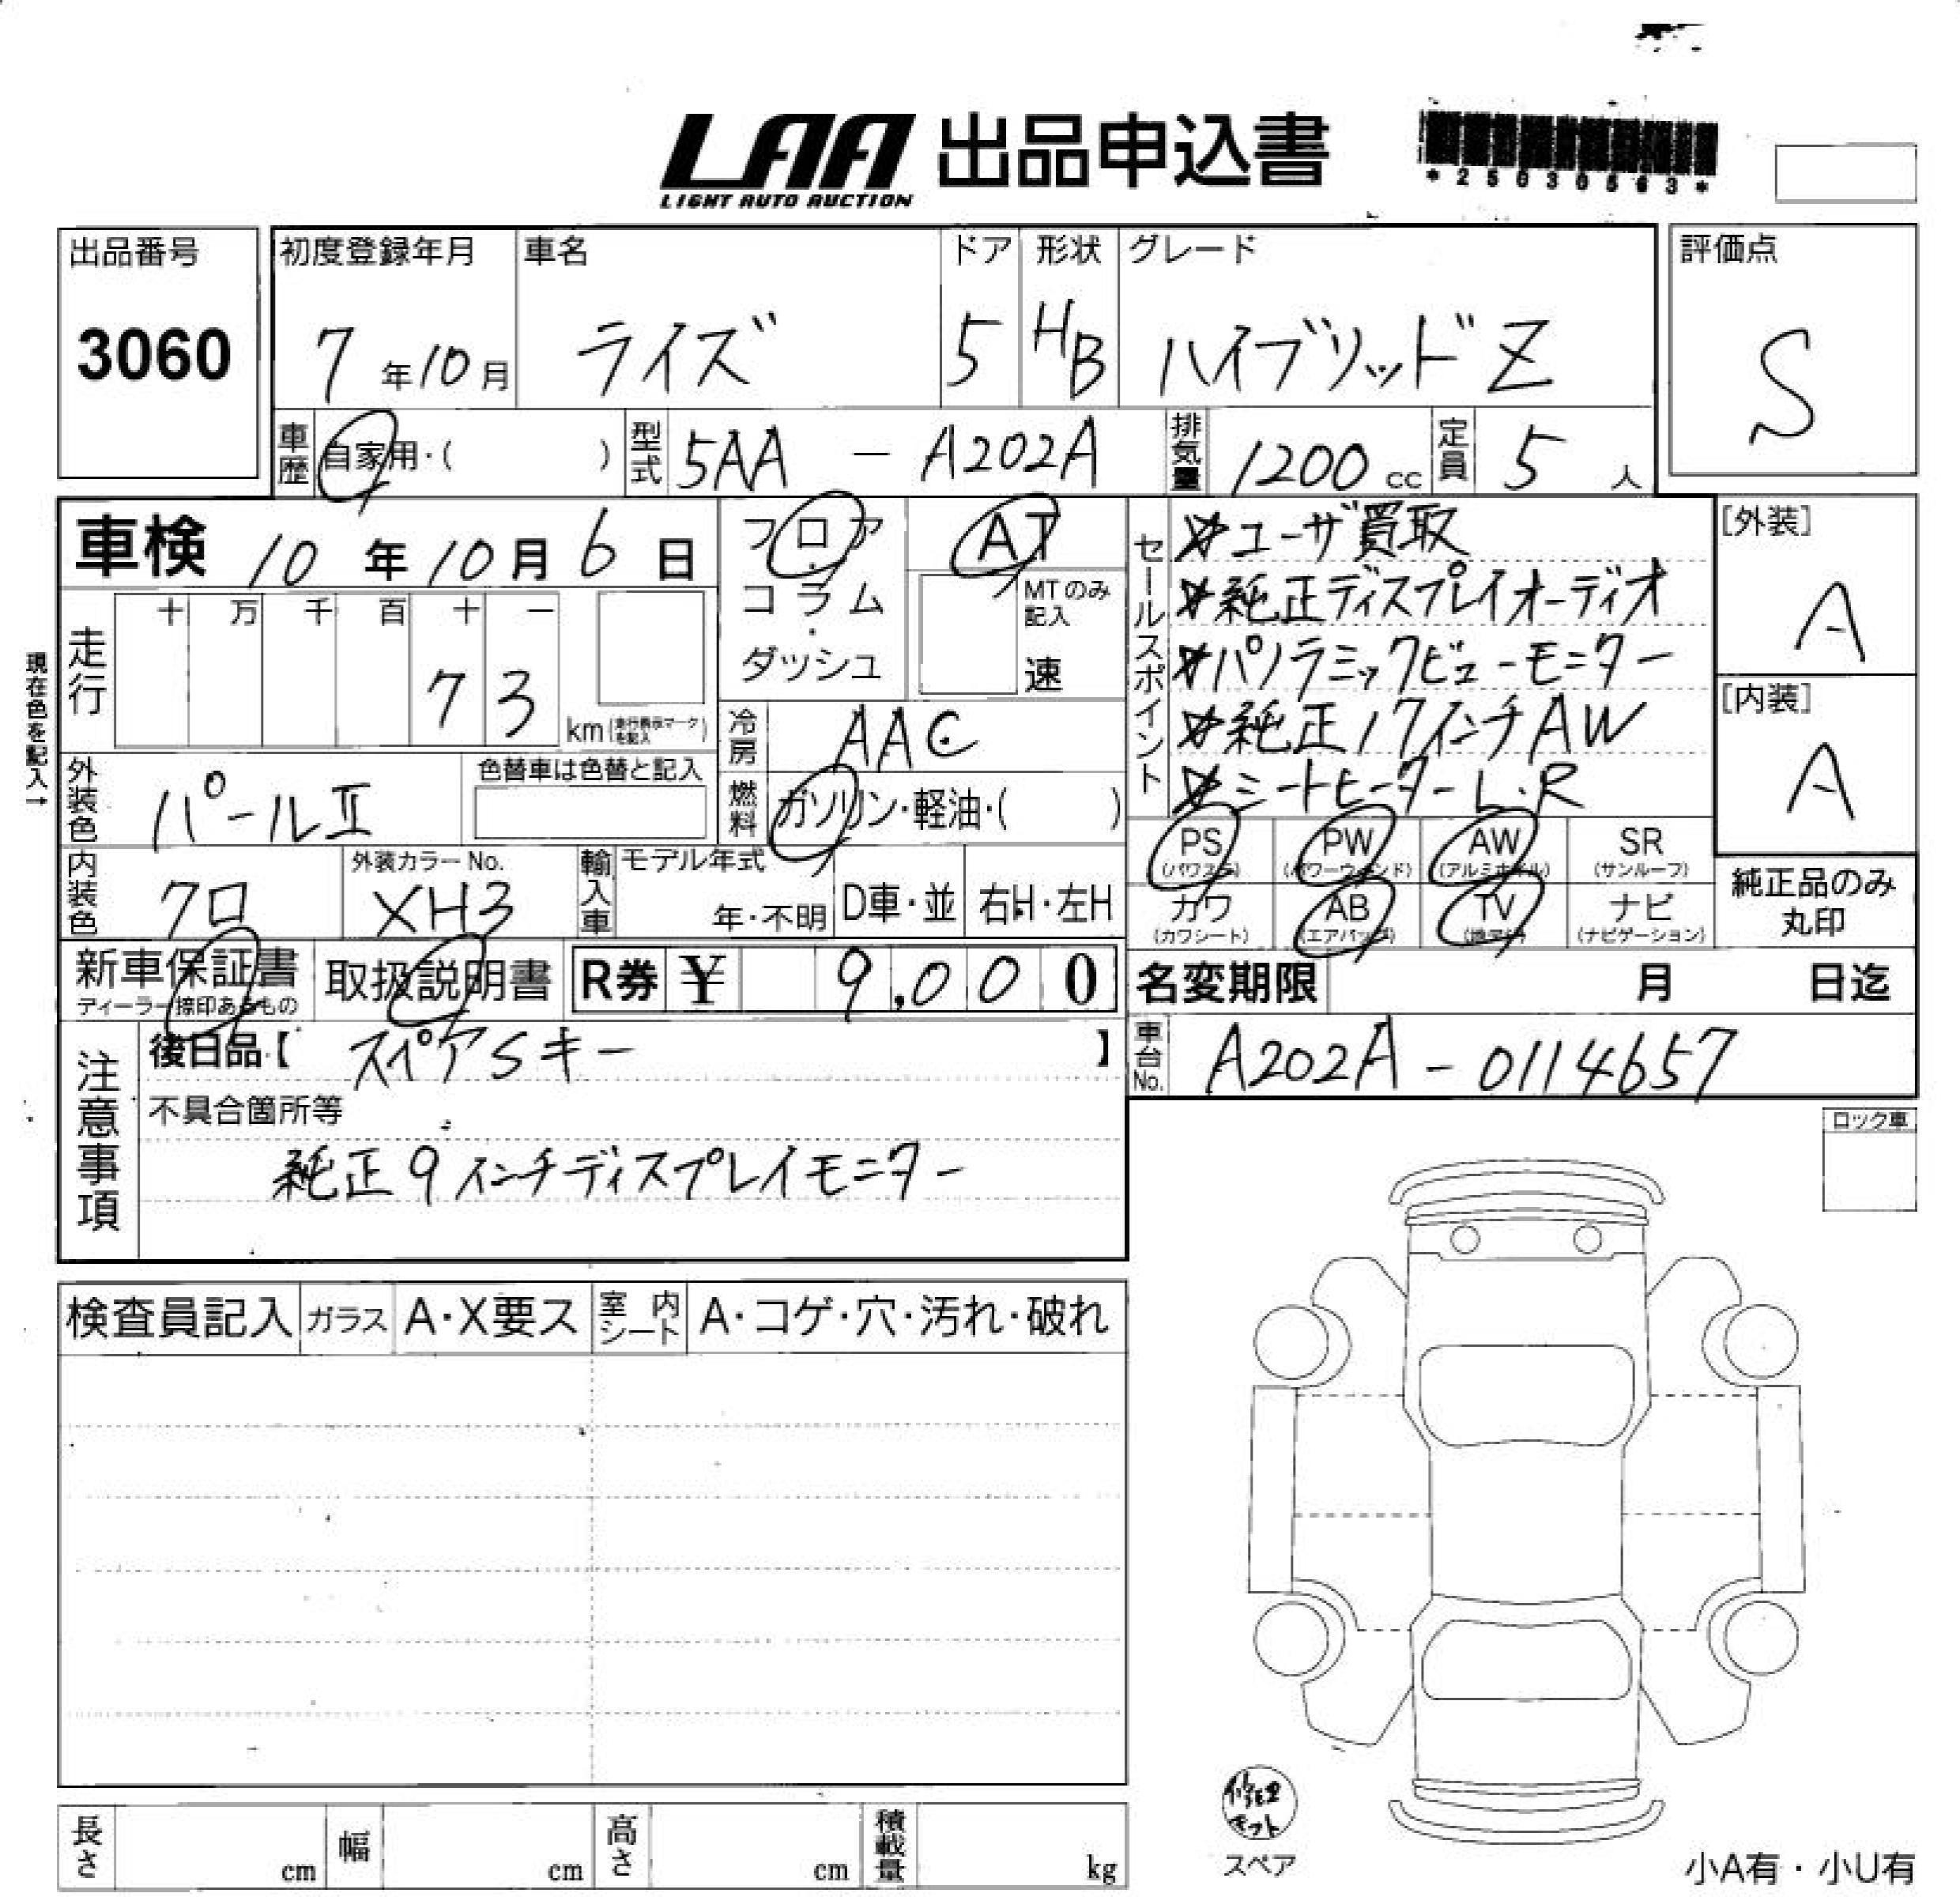 LAA 出品申込書
LIGHT AUTO AUCTION
出品番号
3060
初度登録年月
7年10月
車名
ライズ
ドア
5
形状
HB
グレード
ハイブリッドZ
評価点
S
車歴
自家用・( )
型式
5AA - A202A
排気量
1200 cc
定員
5 人
車検 10年10月6日
フロア
コラム
・
ダッシュ
AT
MTのみ
記入
速
セールスポイント
☆ユーザ買取
☆純正ディスプレイオーディオ
☆パノラミックビューモニター
☆純正17インチAW
☆シートヒーターL.R
[外装]
A
[内装]
A
現在色を記入→
走行
十 万 千 百 十 一
7 3
km(走行表示マークを記入)
冷房
AAC
外装色
パールⅡ
色替車は色替と記入
燃料
ガソリン・軽油・( )
PS
(パワステ)
PW
(パワーウィンド)
AW
(アルミホイル)
SR
(サンルーフ)
カワ
(カワシート)
AB
(エアバッグ)
TV
ナビ
(ナビゲーション)
純正品のみ
丸印
内装色
クロ
外装カラーNo.
XH3
輸入車
モデル年式
年・不明
D車・並
右H・左H
新車保証書
ディーラー捺印あるもの
取扱説明書
R券 ¥ 9,000
名変期限 月 日迄
車台No.
A202A-0114657
注意事項
後日品【 スペアSキー 】
不具合箇所等
純正9インチディスプレイモニター
ロック車
検査員記入
ガラス
A・X要ス
室内シート
A・コゲ・穴・汚れ・破れ
長さ cm
幅 cm
高さ cm
積載量 kg
修理
キット
スペア
小A有・小U有